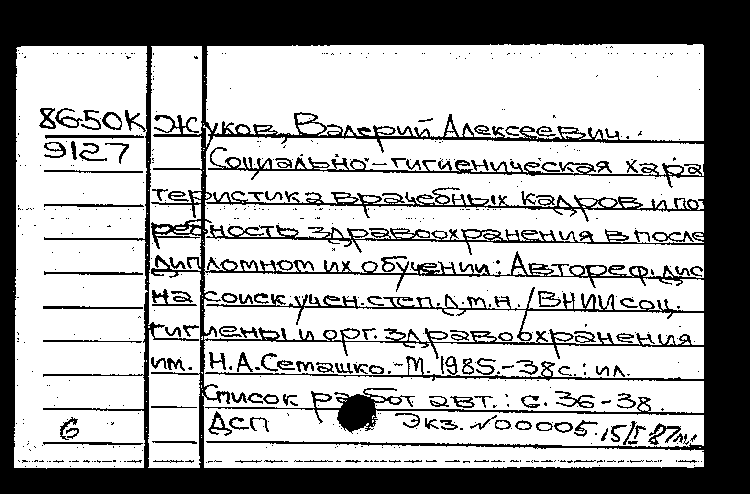 8650К Жуков, Валерий Алексеевич.
9127 Социально-гигиеническая харак
теристика врачебных кадров и пот
ребность здравоохранения в после
дипломном их обучении: Автореф. дис
на соиск. учен. степ. д.м.н. /ВНИИ соц.
гигиены и орг. здравоохранения
им. Н.А.Семашко.-М., 1985.-38с.: ил.
Список работ авт.: с. 36-38.
6 ДСП Экз. N00005. 15/I 87